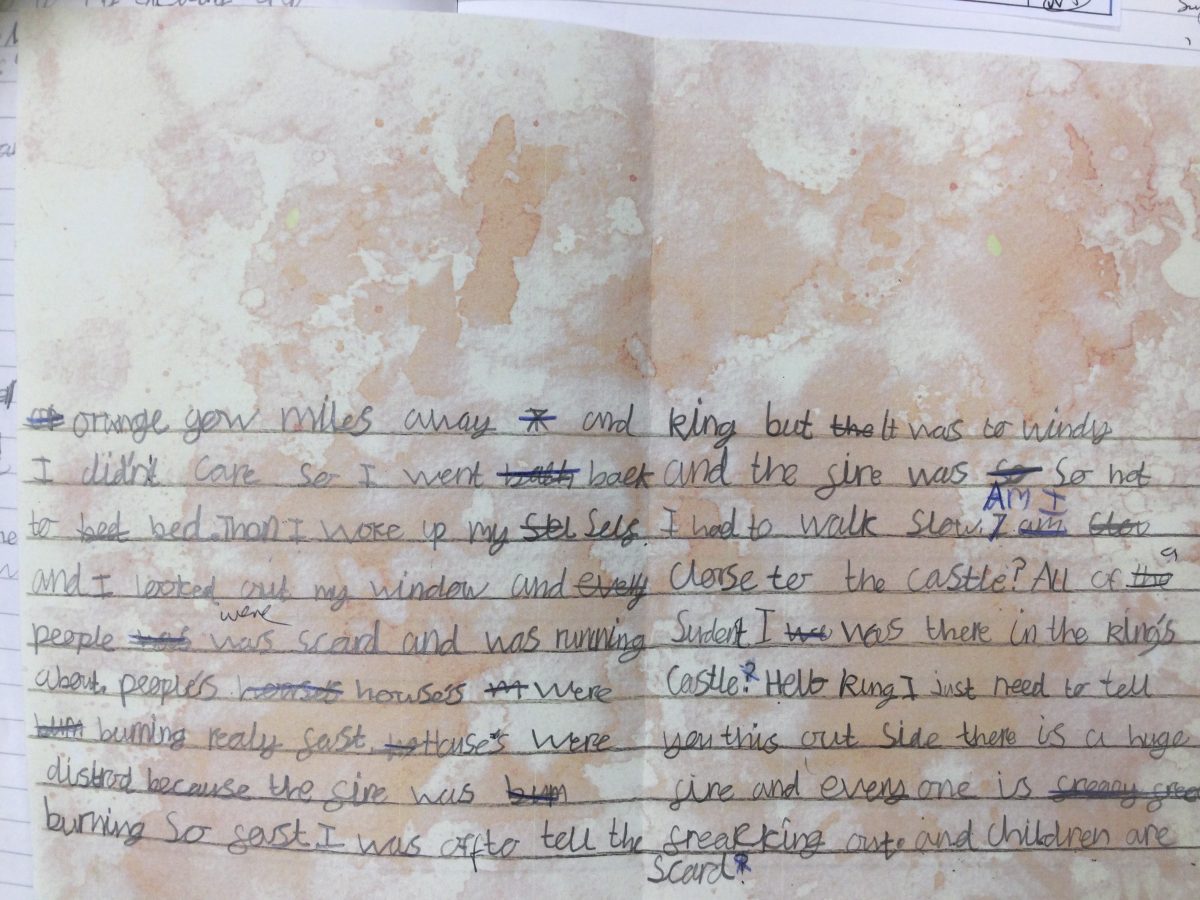 orange gow miles away and
I didn't care so I went back
to bed. Than I woke up my self.
and I looked out my window and every
people were was scard and was running
about. people's house's were
burning realy fast. House's were
distrod because the fire was
burning so fast I was off to tell the
king but It was to windy
and the fire was so hot
I had to walk slow. Am I
close to the castle? All of a
Sudent I was there in the king's
Castle. Hello king I just need to tell
you this out side there is a huge
fire and every one is
freakking out. and children are
scard.